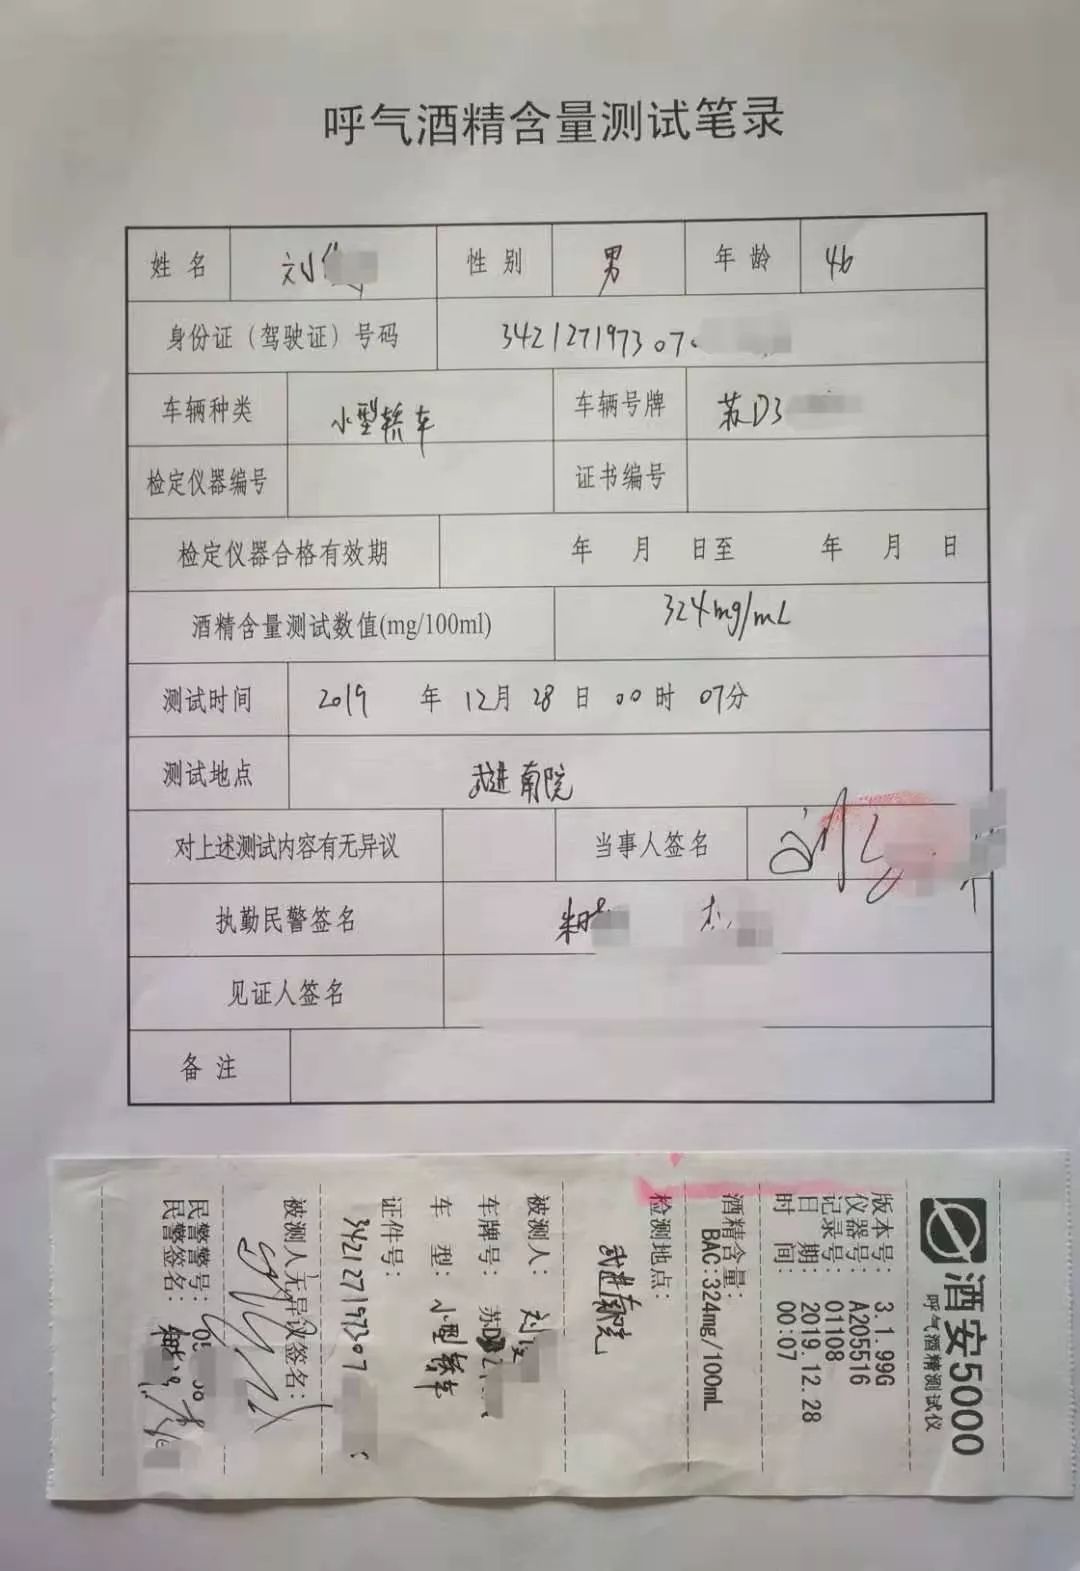 呼气酒精含量测试笔录
姓名 刘 性别 男 年龄 46
身份证（驾驶证）号码 342127197307
车辆种类 小型轿车 车辆号牌 苏D3
检定仪器编号 证书编号
检定仪器合格有效期 年 月 日至 年 月 日
酒精含量测试数值(mg/100ml) 324mg/mL
测试时间 2019 年 12月 28 日 00 时 07分
测试地点 武进南院
对上述测试内容有无异议 当事人签名 刘
执勤民警签名
见证人签名
备注
酒安5000
呼气酒精测试仪
版本号: 3.1.99G
仪器号: A205516
记录号: 01108
日 期: 2019.12.28
时 间: 00:07
酒精含量:
BAC:324mg/100mL
检测地点:
武进南院
被测人: 刘
车牌号: 苏D
车 型: 小型轿车
证件号:
34212719730 7
被测人无异议签名:
民警警号:
民警签名: